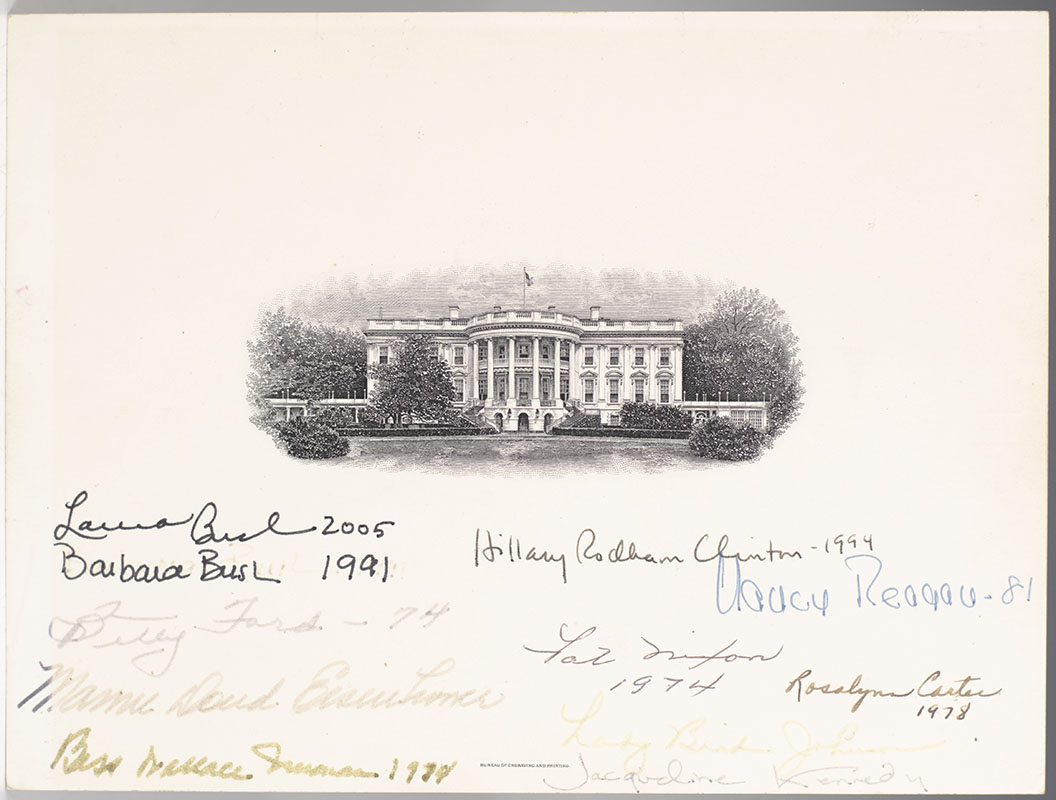 Laura Bush 2005
Barbara Bush 1991
Hillary Rodham Clinton - 1994
Nancy Reagan - 81
Betty Ford - 74
Pat Nixon
1974
Mamie Doud Eisenhower
Rosalynn Carter
1978
Lady Bird Johnson
Bess Wallace Truman 1974
BUREAU OF ENGRAVING AND PRINTING
Jacqueline Kennedy